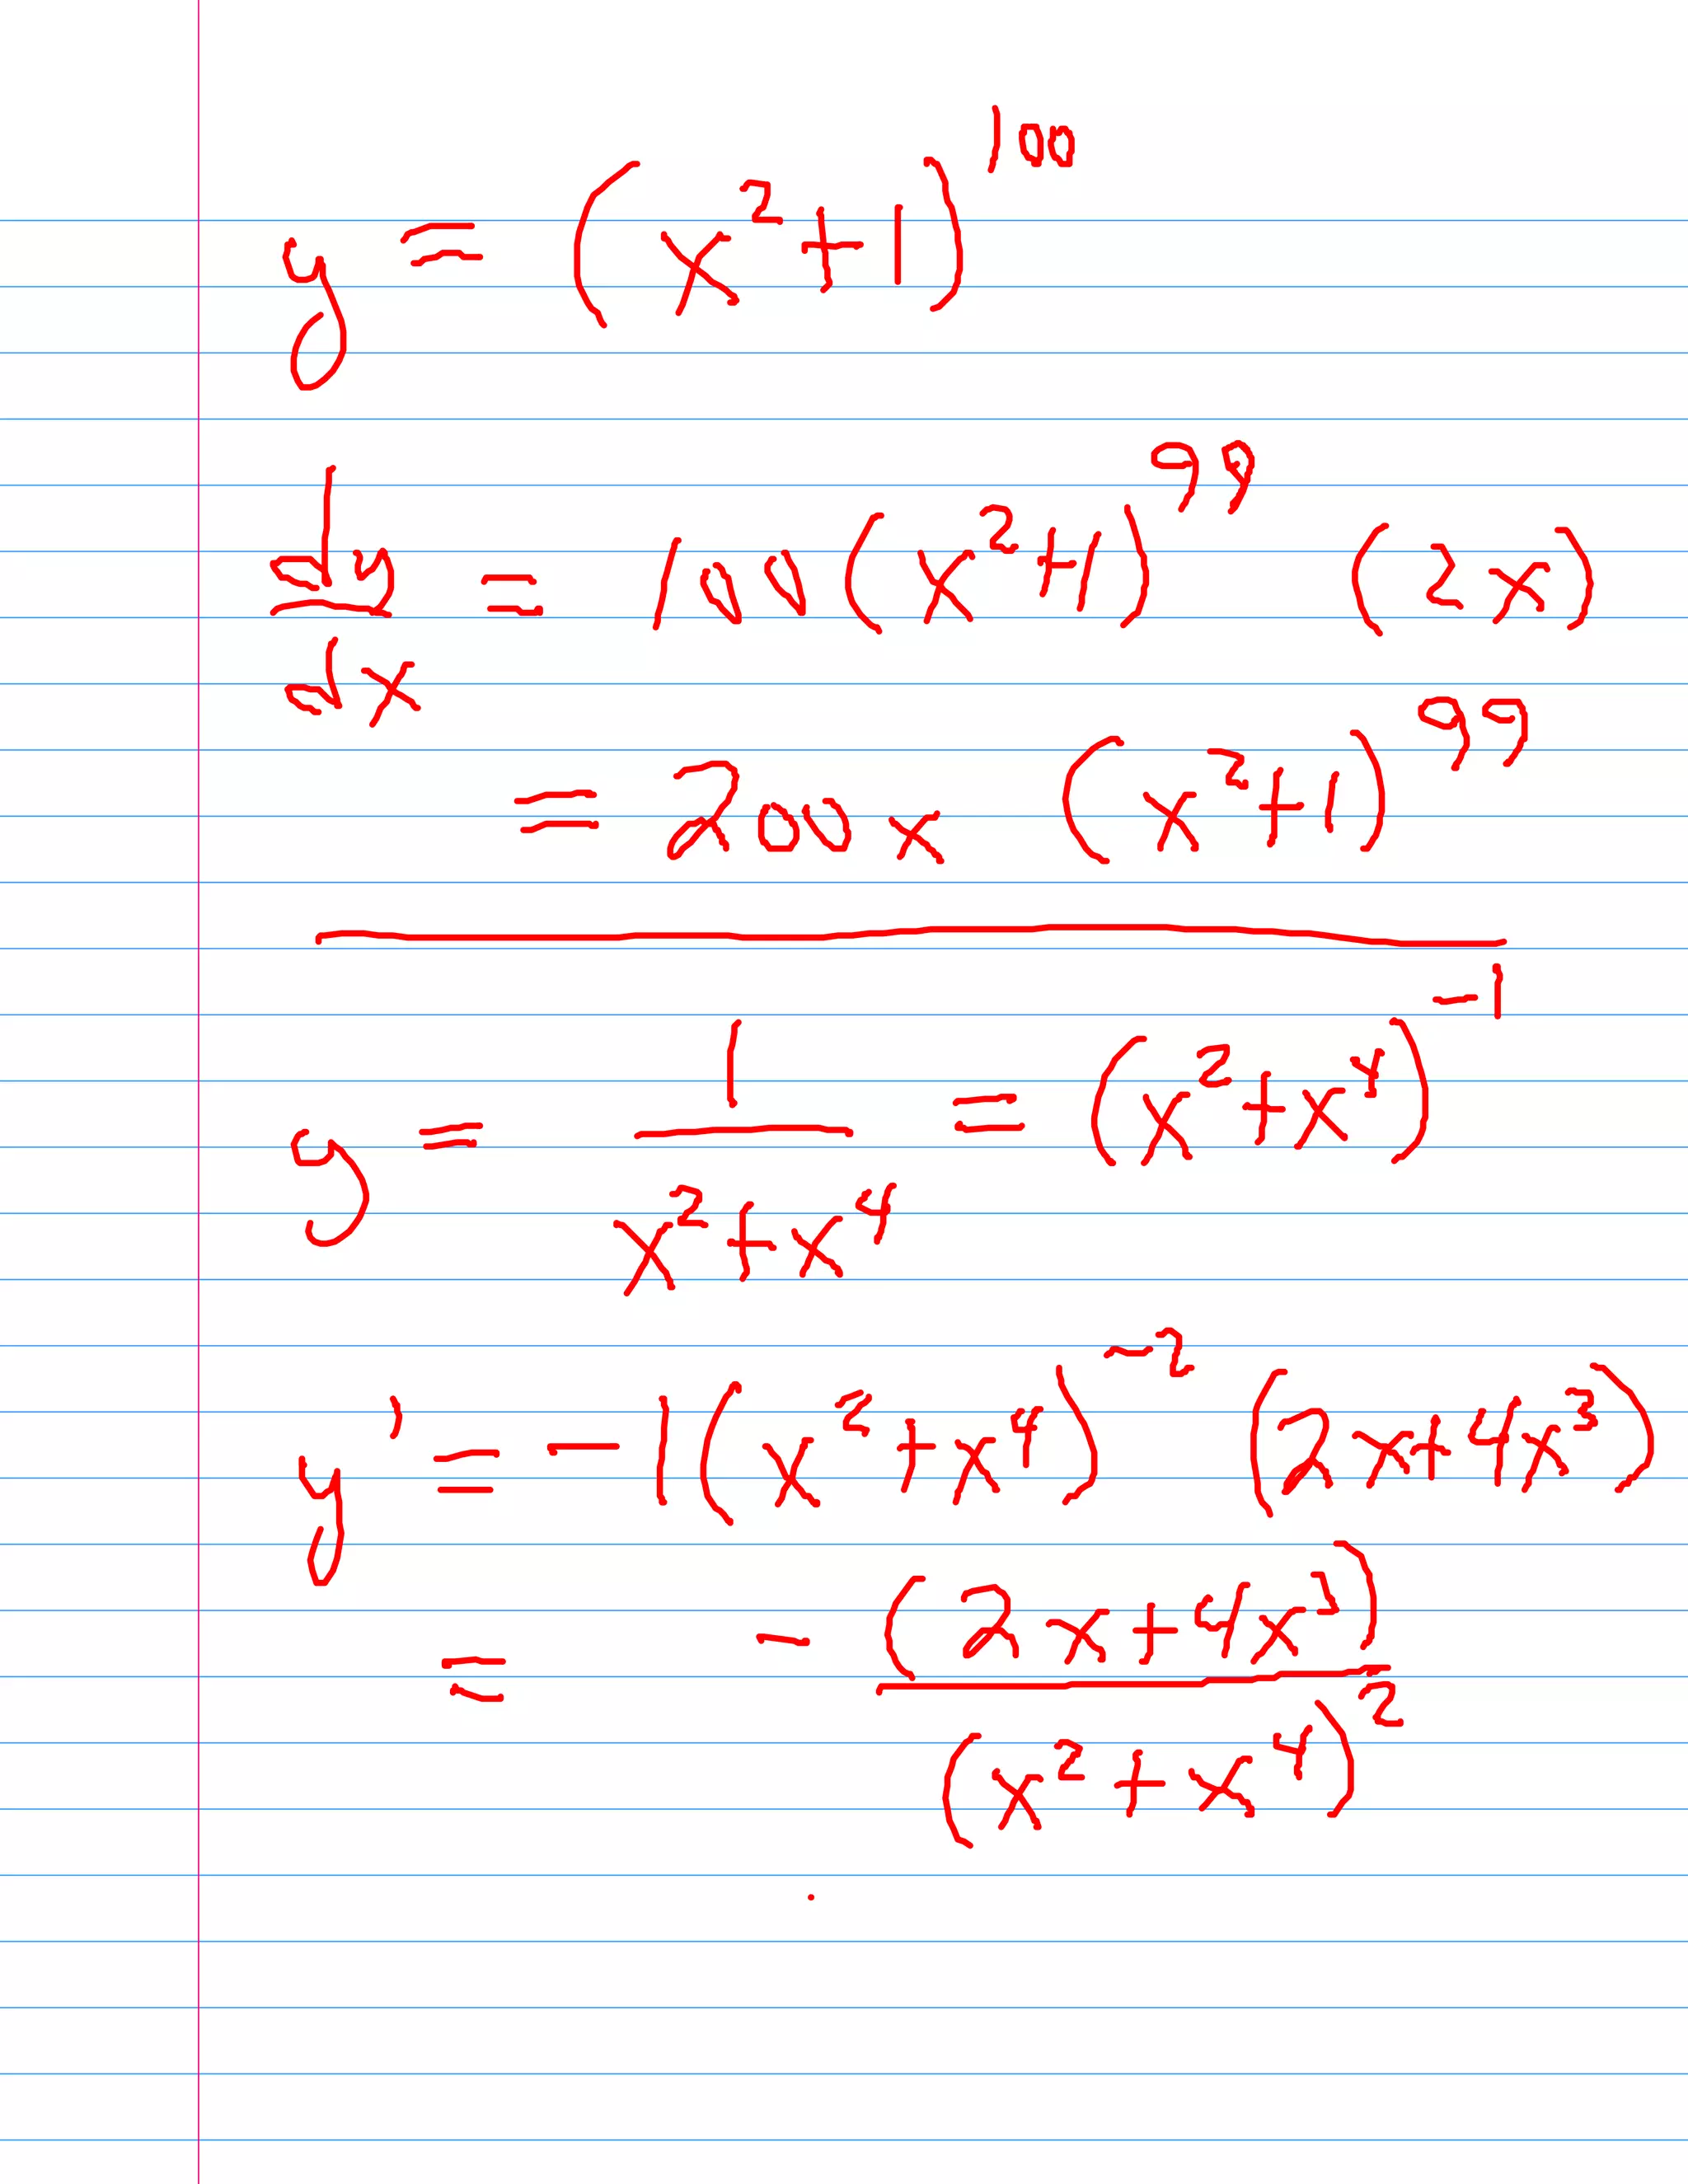 y = (x² + 1)¹⁰⁰
dy/dx = 100 (x² + 1)⁹⁹ (2x)
= 200x (x² + 1)⁹⁹
y = 1/(x² + x⁴) = (x² + x⁴)⁻¹
y' = -1 (x² + x⁴)⁻² (2x + 4x³)
= -(2x + 4x³)/(x² + x⁴)²